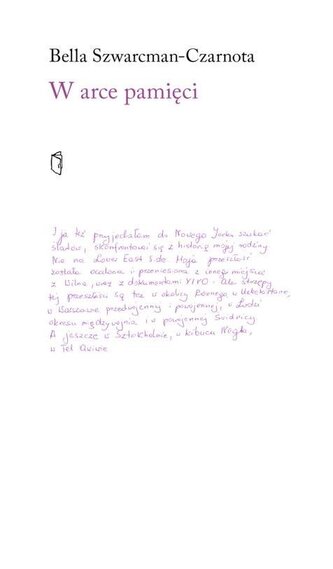 Bella Szwarcman-Czarnota
W arce pamięci
I ja też przyjechałam do Nowego Jorku szukać
śladów, skonfrontować się z historią mojej rodziny
Nie na Lower East Side. Moja przeszłość
została ocalona i przeniesiona z innego miejsca
z Wilna, wraz z dokumentami YIVO. Ale strzępy
tej przeszłości są też w okolicy Równego w
w Warszawie przedwojennej i powojennej, w Łodzi
okresu międzywojnia i w powojennej Świdnicy
A jeszcze w Sztokholmie, w kibucu
w Tel Awiwie